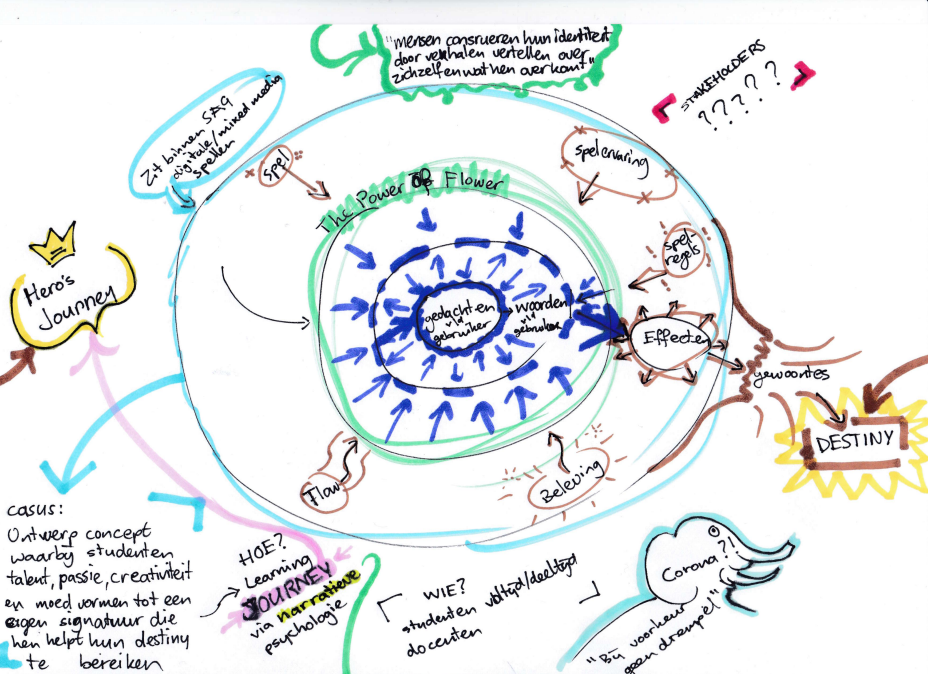 "mensen consrueren hun identiteit
door verhalen vertellen over
zichzelf en wat hen overkomt"
STAKEHOLDERS
?????
Zit binnen SAG
digitale/mixed media
spellen
spel
spelervaring
The Power of Flower
spel-
regels
Hero's
Journey
gedachten
via
gebruiker
woorden
via
gebruiker
Effecten
gewoontes
DESTINY
Flow
Beleving
casus:
Ontwerp concept
waarby studenten
talent, passie, creativiteit
en moed vormen tot een
eigen signatuur die
hen helpt hun destiny
te bereiken
HOE?
Learning
JOURNEY
via narratieve
psychologie
WIE?
studenten voltijd/deeltijd
docenten
Corona?!
"Bij voorkeur
geen drempel"